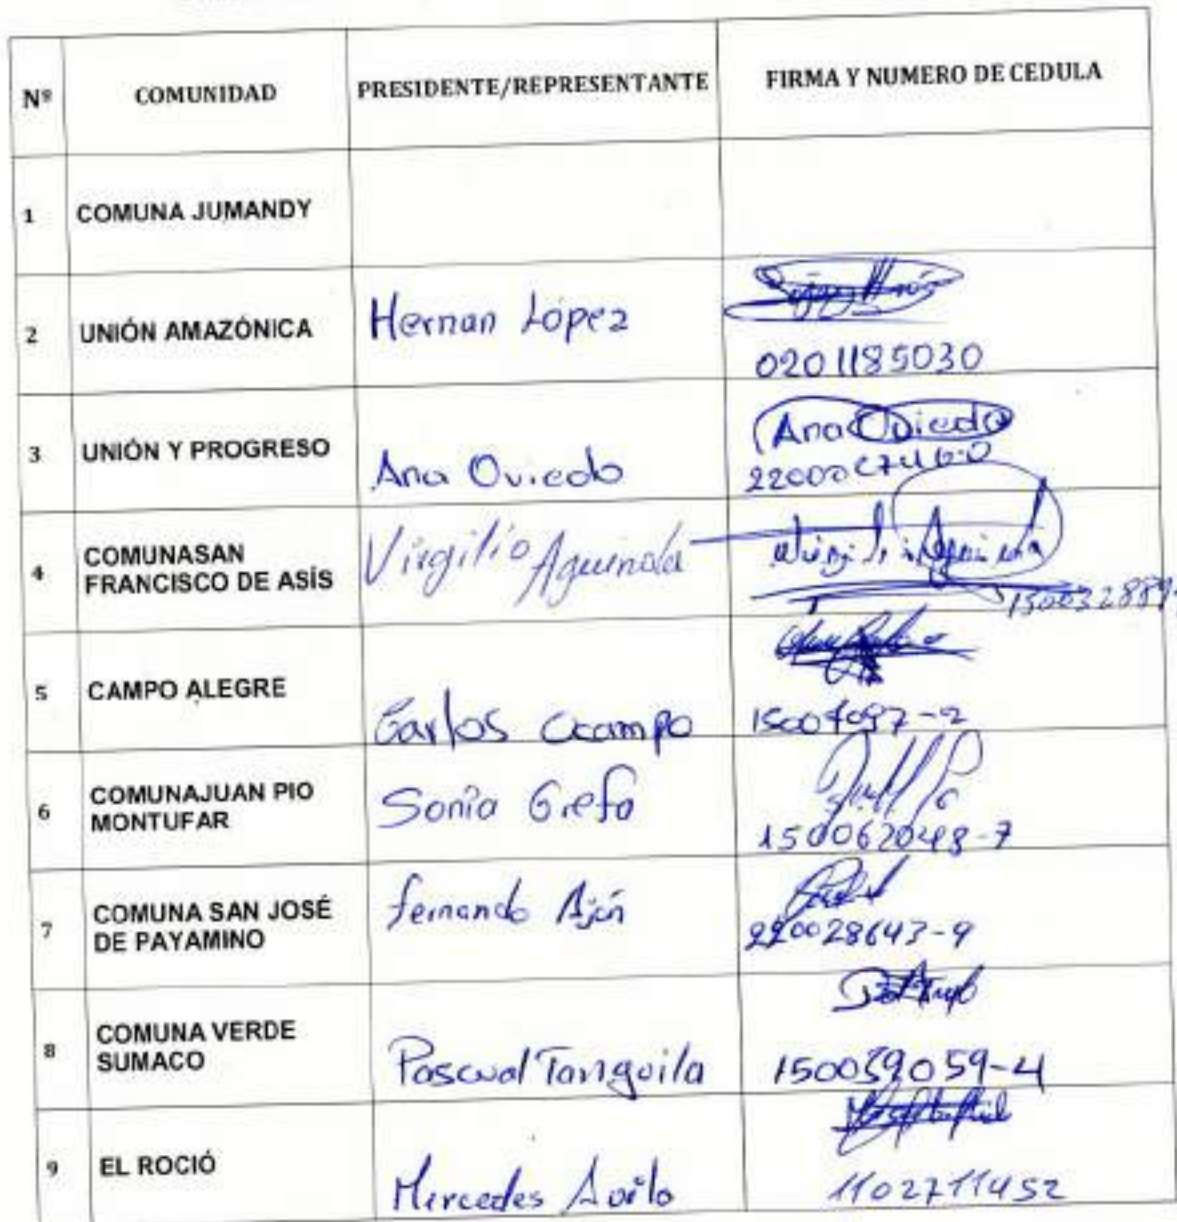 Nº COMUNIDAD PRESIDENTE/REPRESENTANTE FIRMA Y NUMERO DE CEDULA
1 COMUNA JUMANDY
2 UNIÓN AMAZÓNICA Hernan López
0201185030
3 UNIÓN Y PROGRESO Ana Oviedo Ana Oviedo
4 COMUNASAN
FRANCISCO DE ASÍS Virgilio Aguinda
5 CAMPO ALEGRE Carlos Ocampo
6 COMUNAJUAN PIO
MONTUFAR Sonia Grefa
150062048-7
7 COMUNA SAN JOSÉ
DE PAYAMINO fernando Ajón
220028643-9
8 COMUNA VERDE
SUMACO Pascual Tanguila 150039059-4
9 EL ROCIÓ Mercedes Avila 1102711452